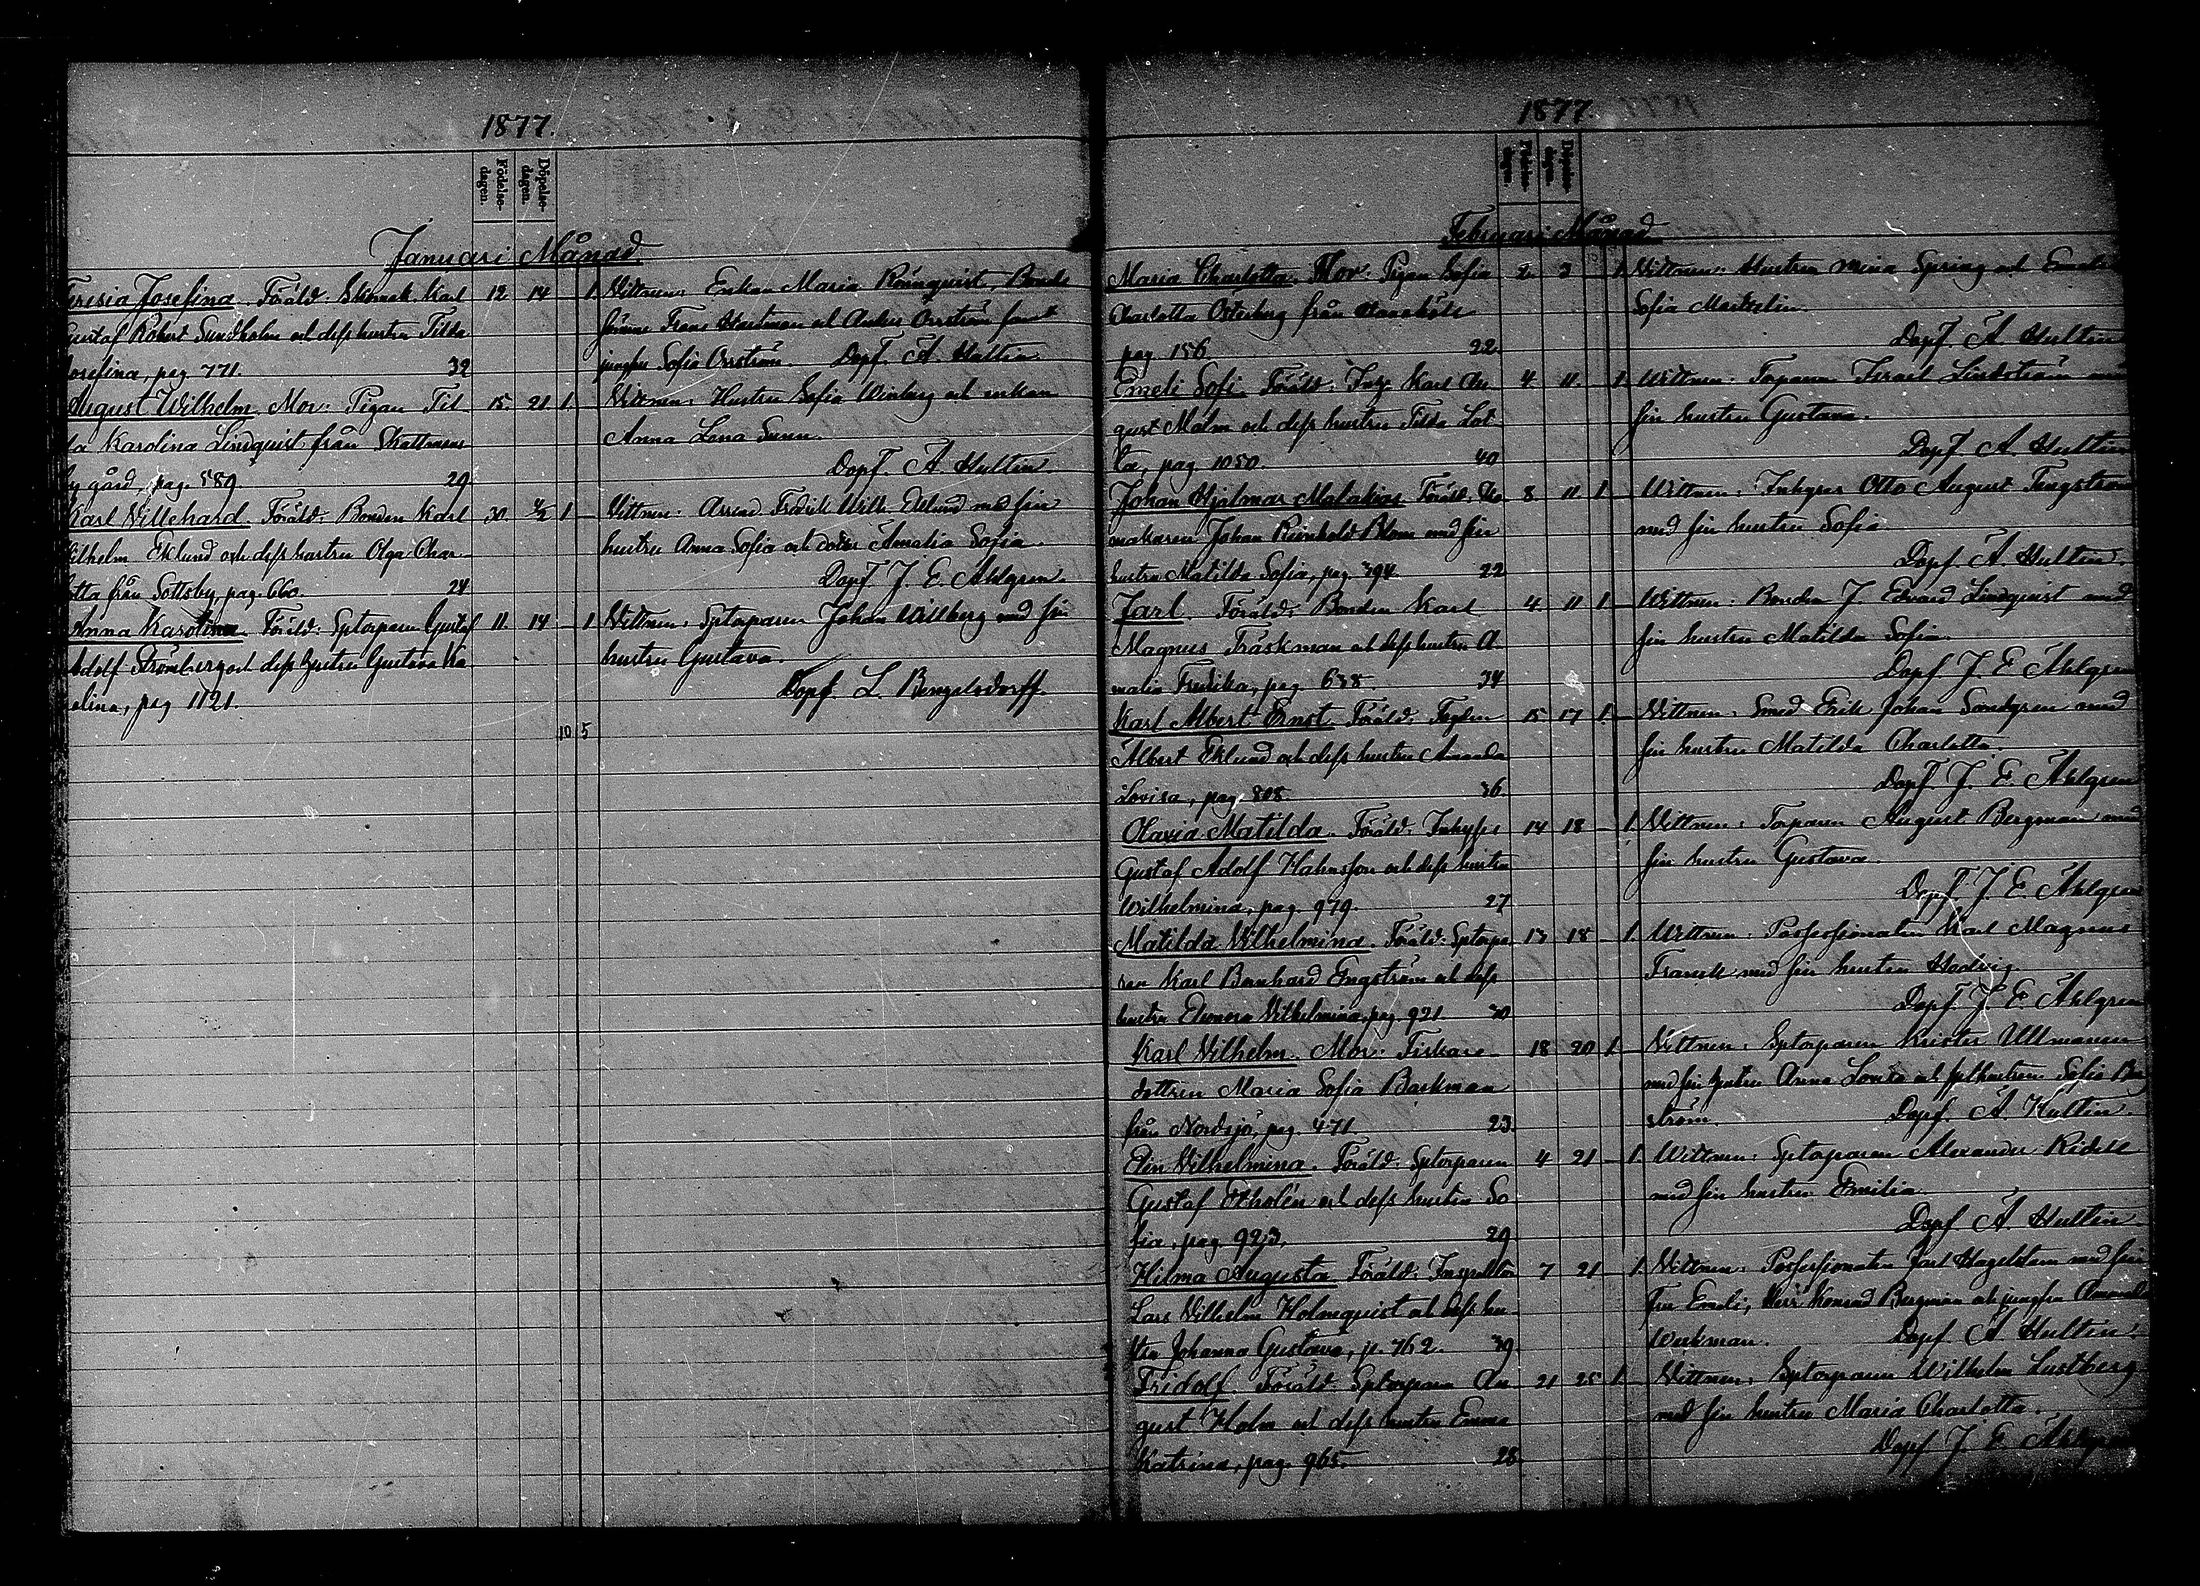 1877.
Födelse-dagen. Döpelse-dagen.
Januari Månad.
Teresia Josefina. Föräld: Skomak. Karl 12 14 – 1 Vittnen: Enkan Maria Rönnquist, Bonde
Gustaf Robert Sundholm och dess hustru Tilda
Josefina, pag. 771. 32 Sofia Orrström. Döpf. A. Hultin
August Wilhelm. Mor: Pigan Til 15. 21 1. Vittnen: Hustru Sofia Winberg och enkan
da Karolina Lindquist från Skattmans Anna Lena Sunn.
by gård, pag. 589. 29 Döpf. A. Hultin
Karl Villehard. Föräld: Bonden Karl 30. 4/2 1 – Vittnen: Fredrik Wilh. Edlund med sin
Vilhelm Eklund och dess hustru Olga Char- hustru Anna Sofia och dotter Amalia Sofia.
lotta från Sottsby, pag. 660. 24 Döpf. J. E. Ahlgren.
Anna Karolina. Föräld: Sptorparen Gustaf 11. 14 – 1 Vittnen: Sptorparen Johan Willberg med sin
Adolf Strömberg och dess hustru Gustava Ka hustru Gustava.
rolina, pag 1121. Döpf. L. Bengelsdorff.
10 5
1877.
Februari Månad
Maria Charlotta. Mor: Pigan Sofia 2 3 – 1. Vittnen: Hustru Mina Spring och
Charlotta Österberg från Sofia
pag 156 22. Döpf. A. Hultin
Emeli Sofi. Föräld: Karl Au 4 11. – 1. Vittnen: Torparen Israel Lindström med
gust Malm och dess hustru Tilda Lot sin hustru Gustava.
ta, pag 1050. 40 Döpf. A. Hultin
Johan Hjalmar Malakias. Föräld: Sko 8 11 1 – Vittnen: Inhyses Otto August Tengström
makaren Johan Reinhold Blom med sin med sin hustru Sofia
hustru Matilda Sofia, pag. 394. 22 Döpf. A. Hultin.
Jarl. Föräld: Bonden Karl 4. 11 1 – Vittnen: Bonden J. Edvard Lindquist med
Magnus Träskman och dess hustru A- sin hustru Matilda Sofia.
malia Fredrika, pag. 638 34 Döpf. J. E. Ahlgren
Karl Albert Ernst. Föräld: 15 17 1. – Vittnen: Smed Erik Johan Sandgren med
Albert Eklund och dess hustru Amanda sin hustru Matilda Charlotta.
Lovisa, pag. 808. 36. Döpf. J. E. Ahlgren
Olavia Matilda. Föräld: Inhyses 14 18 – 1. Vittnen: Torparen August Bergman med
Gustaf Adolf Hahnsson och dess hustru sin hustru Gustava.
Wilhelmina, pag. 979. 27 Döpf. J. E. Ahlgren
Matilda Vilhelmina. Föräld: Sptorpa 13 18 – 1. Vittnen: Possessionaten Karl Magnus
ren Karl Bernhard Engström och dess med sin hustru Hedvig.
hustru Eleonora Vilhelmina, pag. 921 30 Döpf. J. E. Ahlgren
Karl Vilhelm. Mor: Fiskare- 18 20 1. – Vittnen: Sptorparen Krister Ullmanen
dottren Maria Sofia Backman med sin hustru Anna Lovisa och Sofia
från Nordsjö, pag. 471 23. ström. Döpf. A. Hultin.
Elin Vilhelmina. Föräld: Sptorparen 4 21 – 1. Vittnen: Sptorparen Alexander Ridell
Gustaf Ekholén och dess hustru So med sin hustru Emilia.
fia, pag. 923. 29 Döpf. A. Hultin
Hilma Augusta. Föräld: Inspektor 7 21 – 1. Vittnen: Possessionaten Karl Hagelstam med sin
Lars Vilhelm Holmquist och dess hu- fru Emeli, Herr Konrad Bergman och jungfru Amanda
stru Johanna Gustava, p. 762. 39 Wickman. Döpf. A. Hultin.
Fridolf. Föräld: Sptorparen Au 21 25 1 – Vittnen: Sptorparen Wilhelm Lustberg
gust Holm och dess hustru Emma med sin hustru Maria Charlotta.
Katrina, pag. 965. 28 Döpf. J. E. Ahlgren